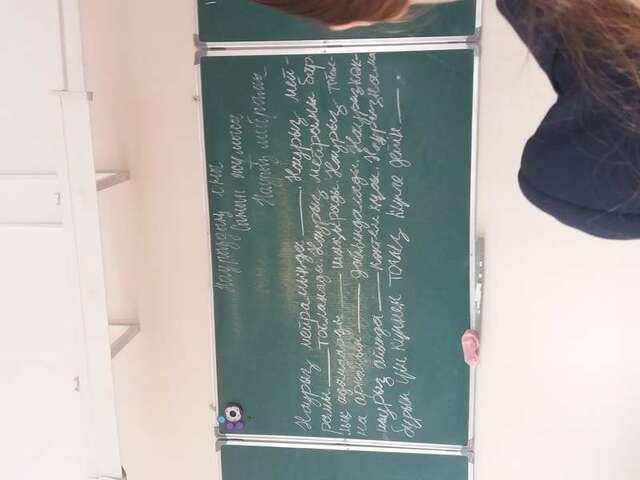 Наурыздың оны
Сынып жұмысы
Наурыз мейрамы
Наурыз мейрамында ____. Наурыз мей-
рамы ____ тойланады. Наурыз мейрамы бар-
лық адамдарды ____ шақырады. Наурыз
на арналып ____ дайындалады. Наурыз көк-
наурыз айында ____ көктем құсы. Наурызнама
бұрын үш күннен тоғыз күнге дейін ____.